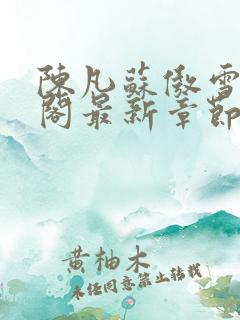 陳凡蘇傲雪
閣最新章節
黃柚木
未经同意禁止转载